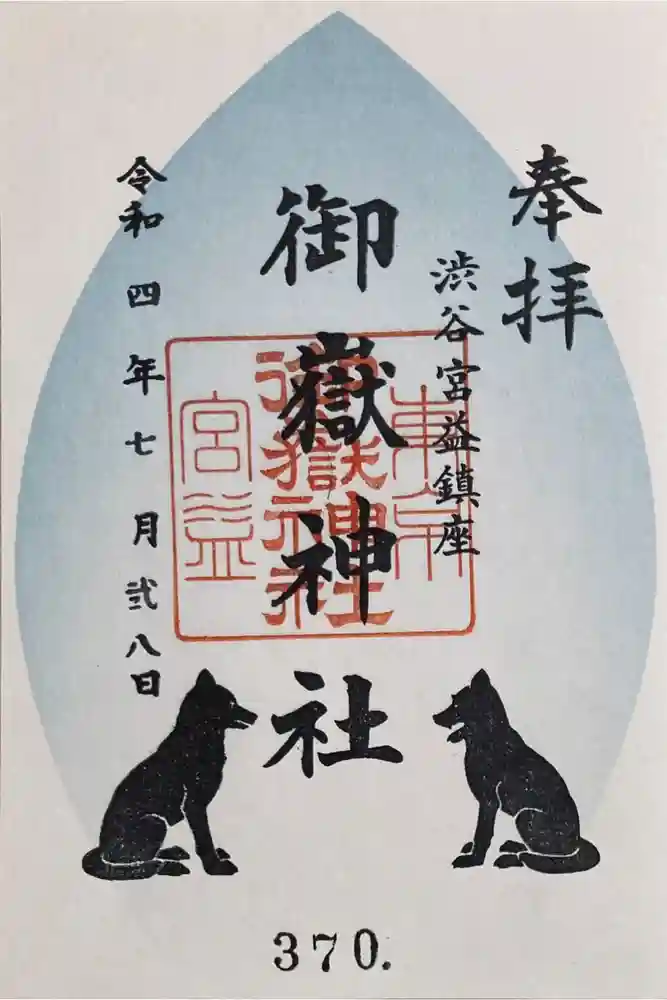 奉拝
渋谷宮益鎮座
御嶽神社
令和四年七月弐八日
東京
御嶽神社
宮益
370.